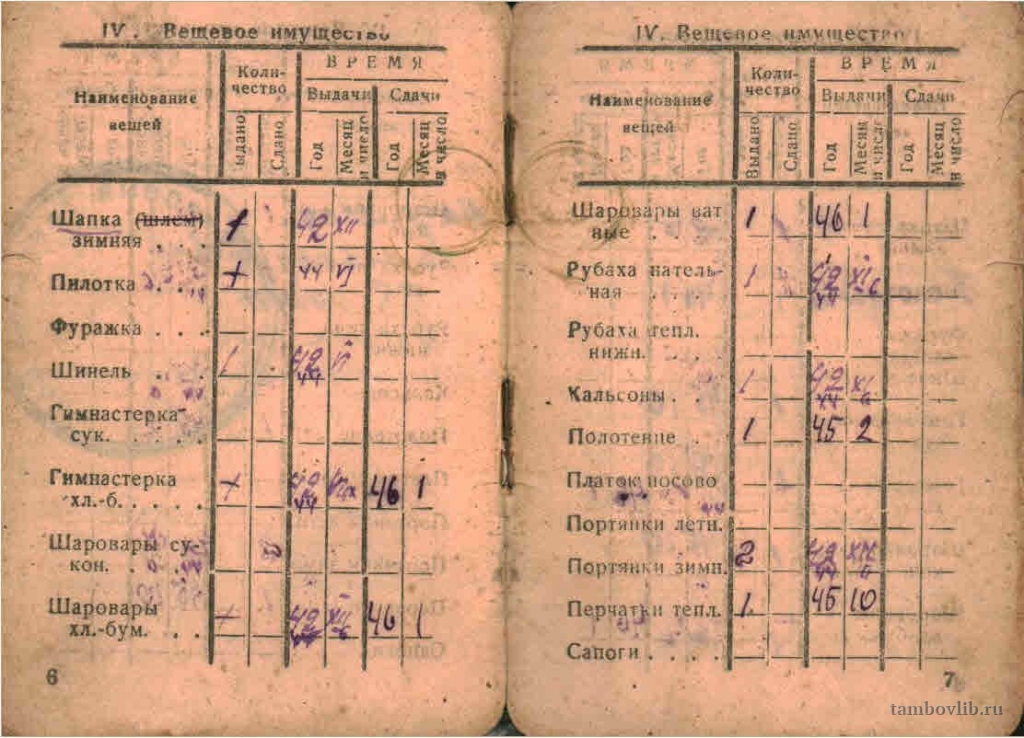 IV. Вещевое имущество
Наименование вещей
Коли-
чество
ВРЕМЯ
Выдачи Сдачи
ыдано
Сдано
Год
Месяц
и число
Год
Месяц
и число
Шапка (шлем) 1 42 XII
зимняя . . .
Пилотка . . . 44 VI
Фуражка . . .
Шинель . . . 1 42 VI
44
Гимнастерка
сук. . . .
Гимнастерка 42 46 1
хл.-б. . . . . 44
Шаровары су-
кон. . . .
Шаровары 42 XII 46 1
хл.-бум. . . 6
6
IV. Вещевое имущество
Наименование
вещей
Коли-
чество
ВРЕМЯ
Выдачи Сдачи
Выдано
Сдано
Год
Месяц
и число
Год
Месяц
и число
Шаровары ват 1 46 1
ные . . . .
Рубаха натель- 1 42 XI
ная . . . . 44 6
Рубаха тепл.
нижн. . . .
Кальсоны . . 1 42 XI
44 6
Полотенце . 1 45 2
Платок носово
Портянки летн.
Портянки зимн. 2 42 XII
44
Перчатки тепл. 1 45 10
Сапоги . . . .
7
tambovlib.ru